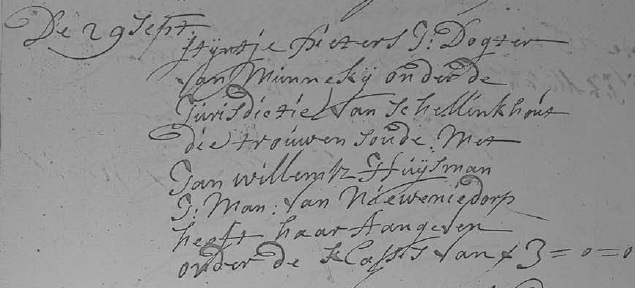 De 29 Sept.
Stijntje Pieters J: Dogter
van Munnekij onder de
Jurisdictie van Schellinkhout
die trouwen soude Met
Jan willemtz Huijsman
J: Man: van Nieweniedorp
heeft haar Aangeven
onder de Classis van ƒ 3=0=0